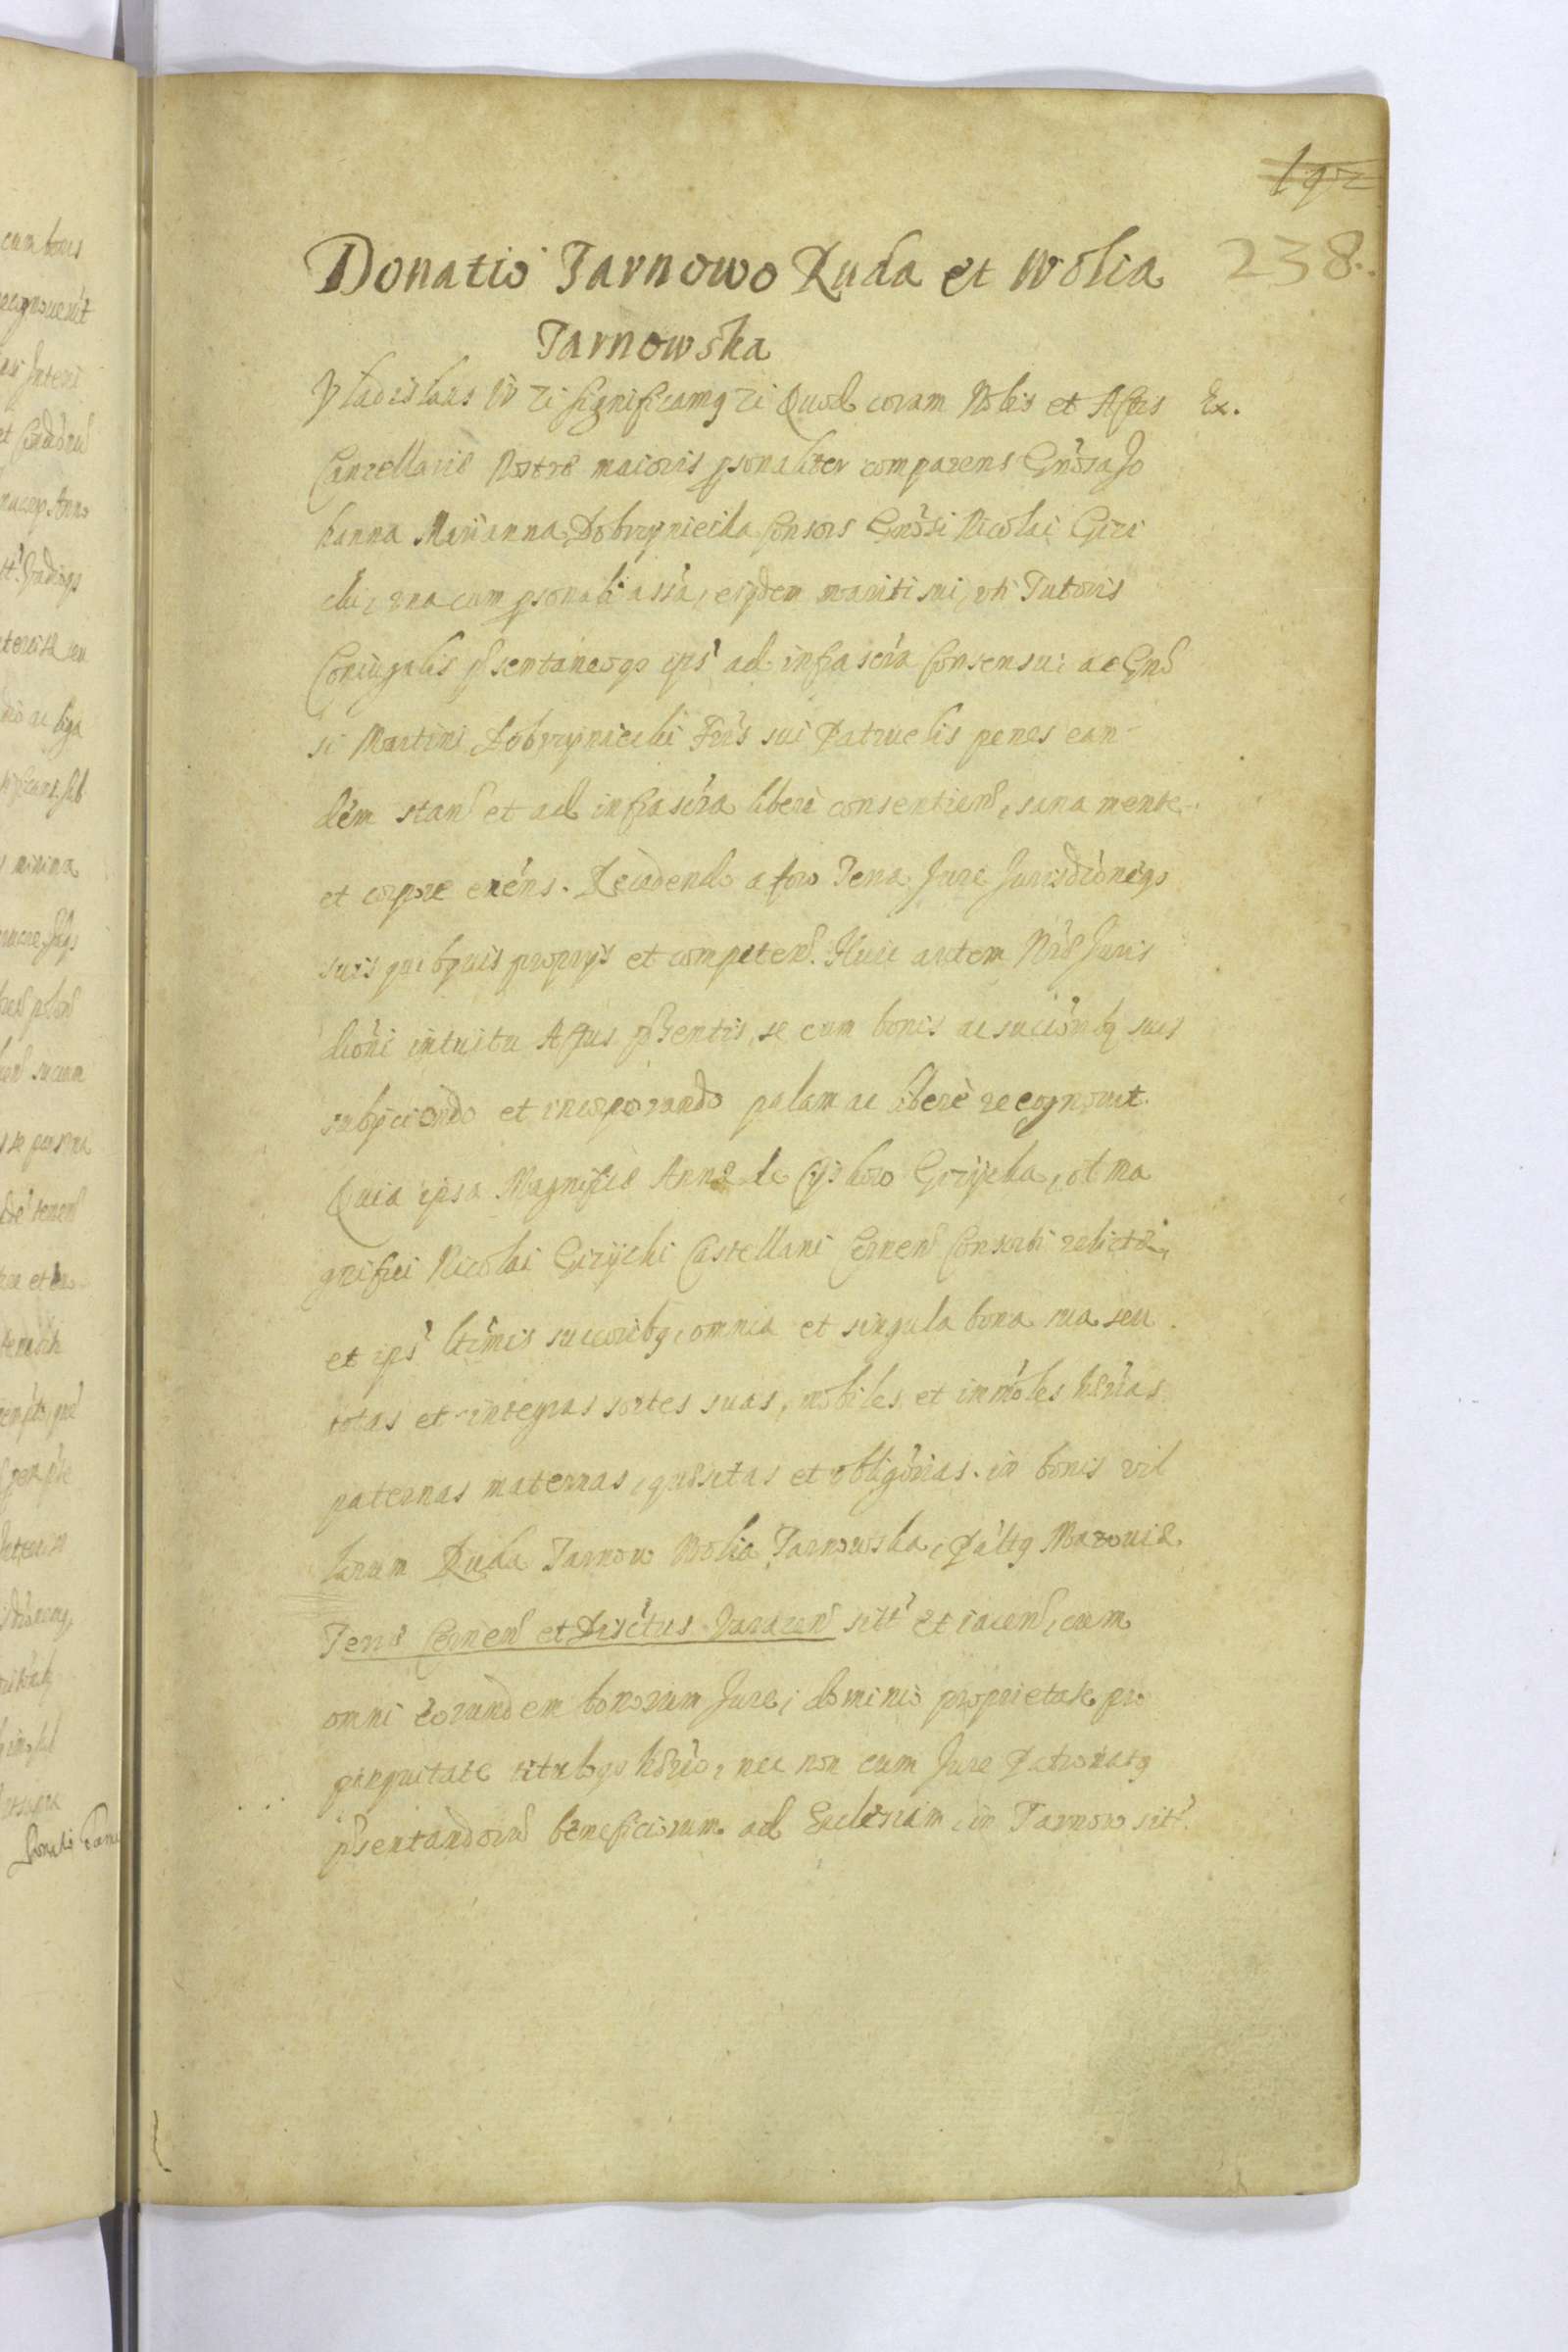 192
238.
Donatio Tarnowo Ruda et Wolia
Tarnowska
Vladislaus IV &c significamq &c Quod coram Nobis et Actis Ex.
Cancellariæ Nostræ maioris psonaliter comparens Gnosa Jo
hanna Marianna Dobrzyniecka Consors Gnosi Nicolai Grzi
cki, vna cum psonali assia, eiusdem mariti sui, vti Tutoris
Coniugalis psentaneoqs ips ad infrascra Consensu: ac Gno
si Martini Dobrzyniecki Fris sui Patruelis penes ean-
dem stan et ad infrascra liberè consentien, sana mente
et corpore exens. Recedendo a foro Terra Jure Jurisdioneqs
suis quibusuis proprys et competen. Huic autem Nræ Juris
dioni intuitu Actus psentis, se cum bonis ac succoribq suis
subyciendo et incorporando palam ac liberè recognouit.
Quia ipsa Magnificæ Annæ de Grzycka, ol Ma
gnifici Nicolai Grzycki Castellani Cernen Consorti relictæ,
et ips ltimis succoribq, omnia et singula bona sua seu
totas et integras sortes suas, mobiles et immobles hærias
paternas maternas, quæsitas et obligorias. in bonis vil
larum Ruda Tarnow Wolia Tarnowska, Paltq Mazouiæ
Terræ Cernen et Districtus Garazen sitt et iacen, cum
omni eorundem bonorum Jure, dominio proprietate pro
pinquitate tituloqs hærio, nec non cum Jure Patronatq
psentandorū beneficiorum ad Ecclesiam, in Tarnow sitt.